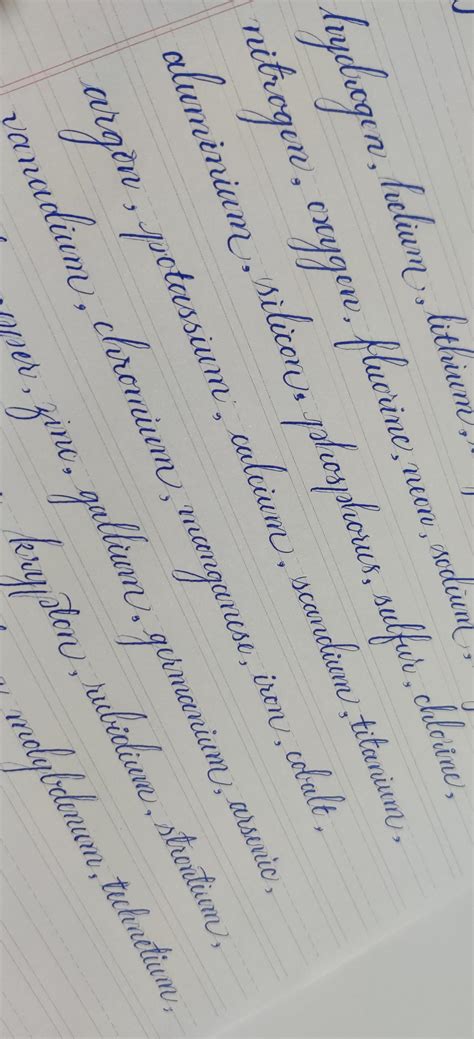 hydrogen, helium, lithium,
nitrogen, oxygen, fluorine, neon, sodium,
aluminium, silicon, phosphorus, sulfur, chlorine,
argon, potassium, calcium, scandium, titanium,
vanadium, chromium, manganese, iron, cobalt,
zinc, gallium, germanium, arsenic,
krypton, rubidium, strontium,
molybdenum,